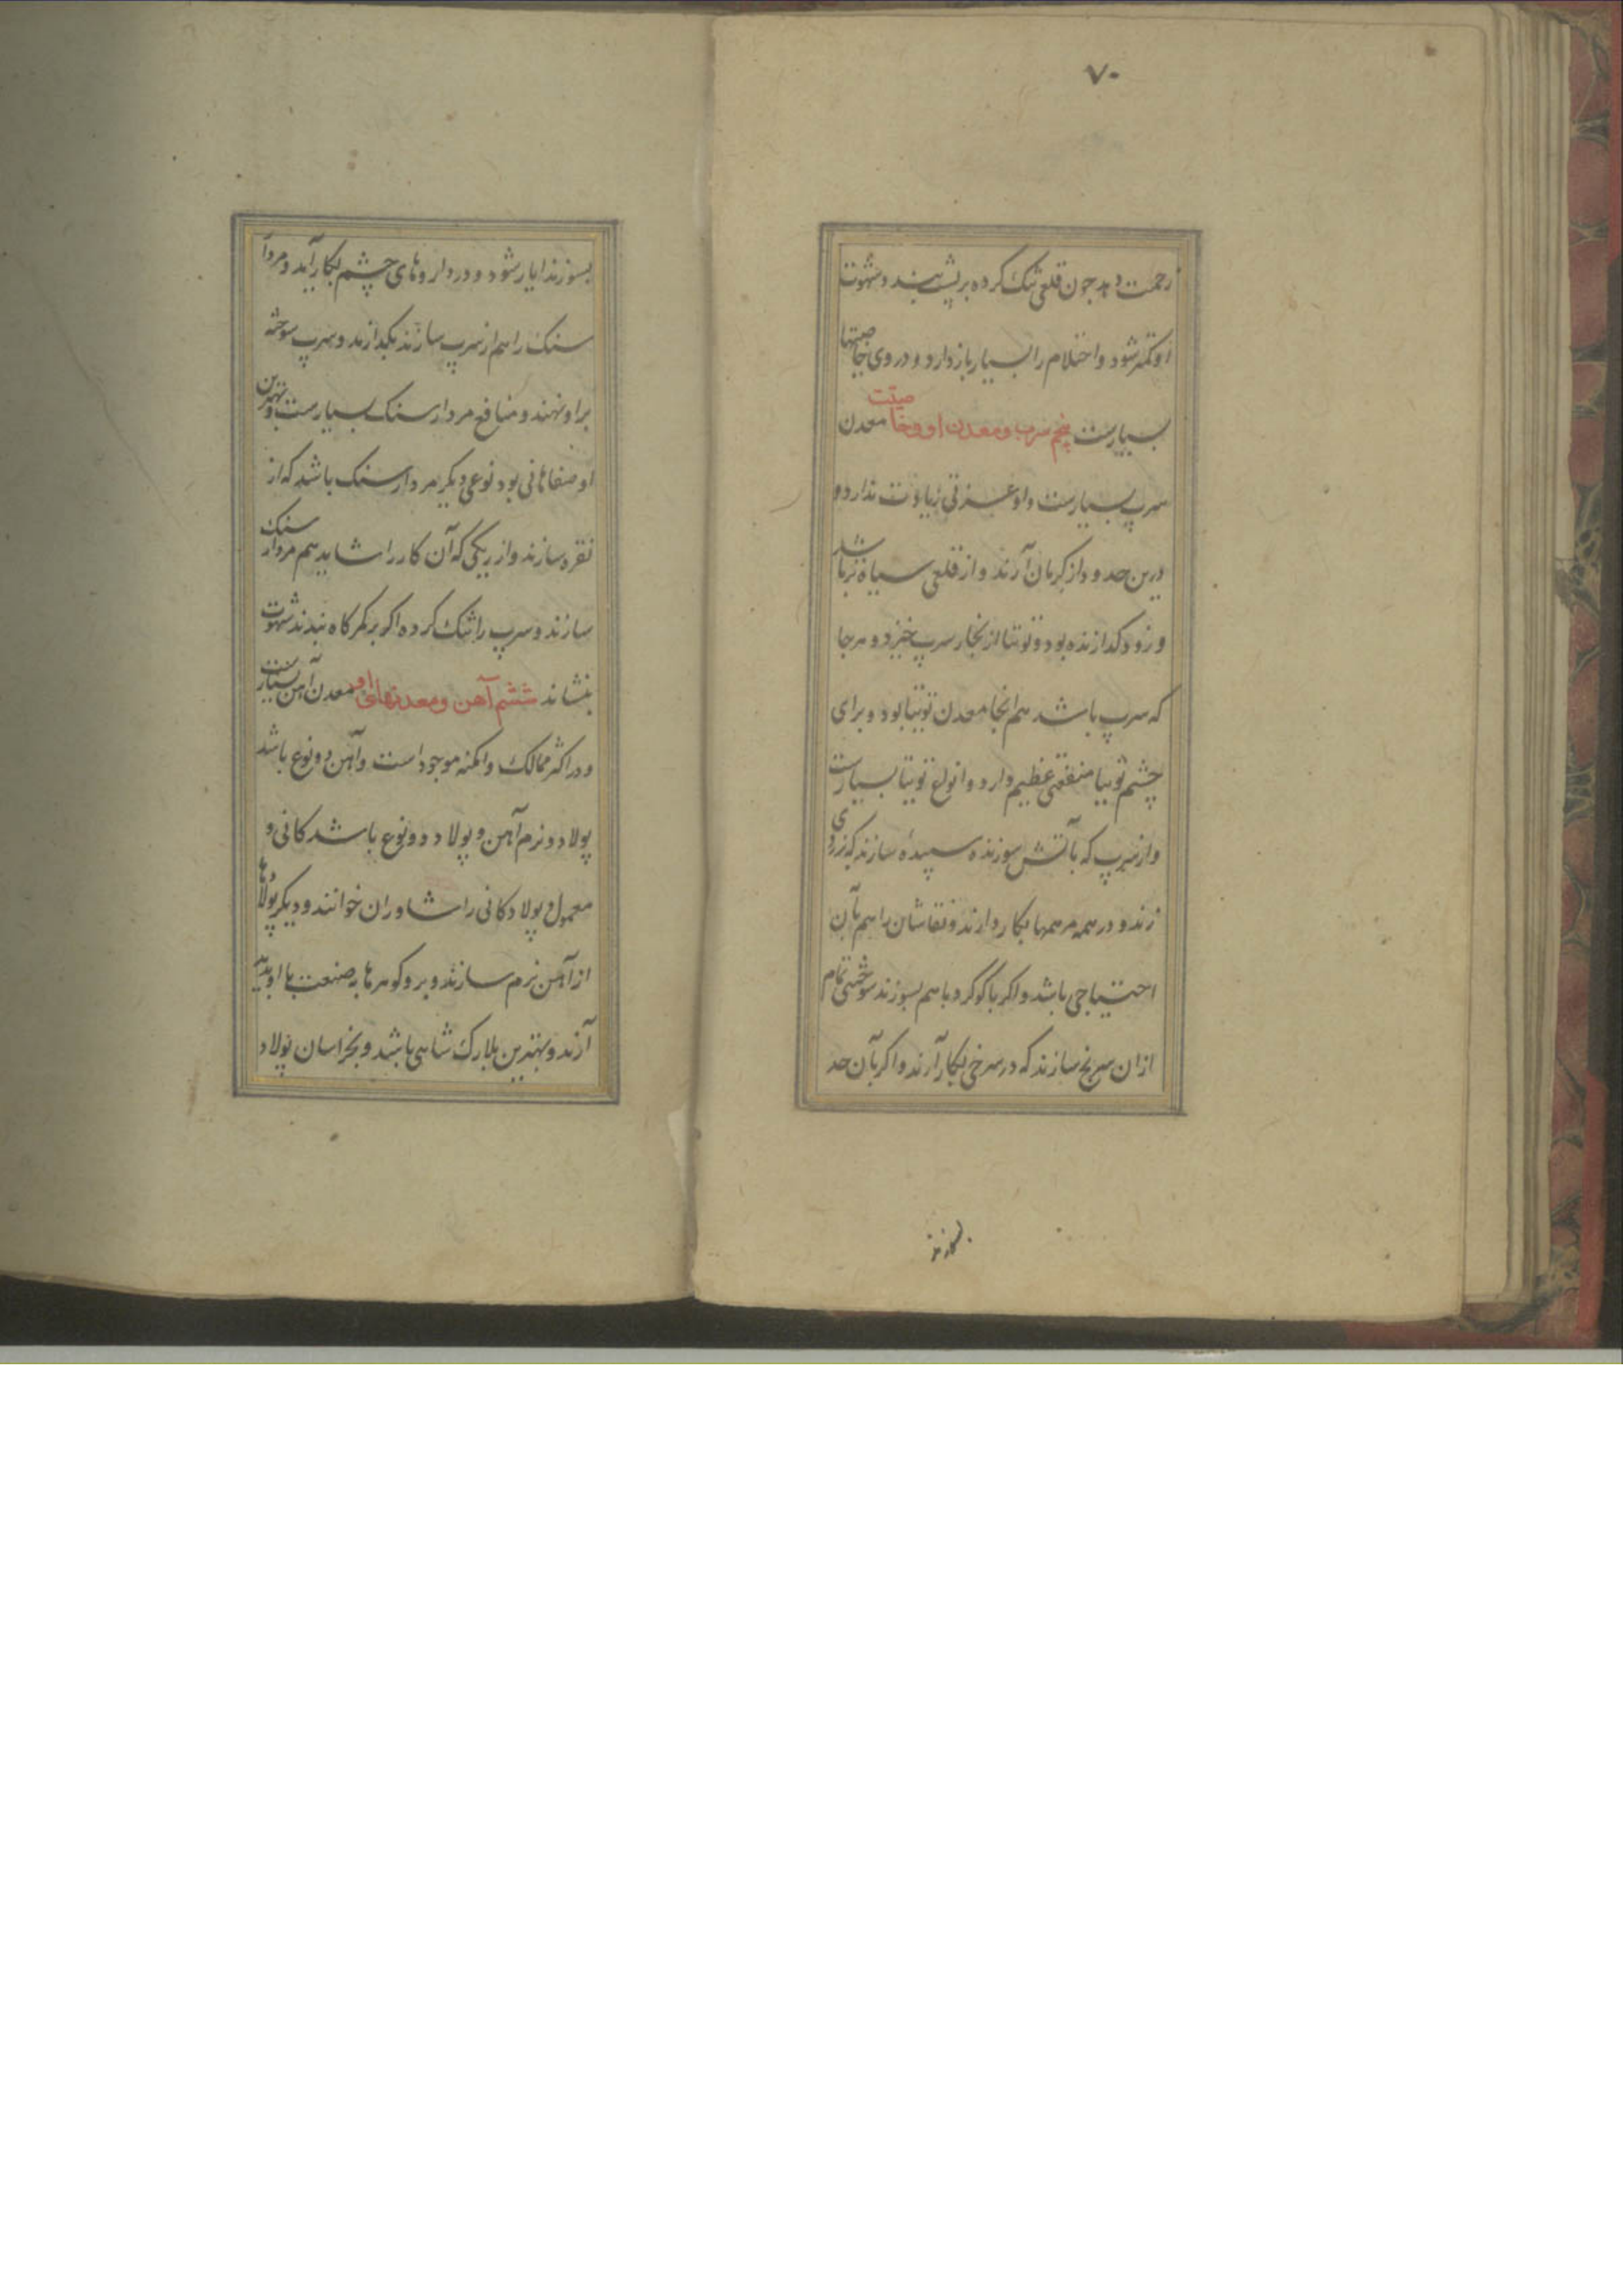 ۷۰
زحمت دهد چون قلعی تنک کرده بر پشت بندد شهوت
او کمتر شود و احتلام را بسیار باز دارد و در وی خاصیتها
بسیارست پنجم سرب و معدن او و خاصیت معدن
سرپ بسیارست و او عزتی زیادت ندارد و
درین حدود از کرمان آرند و از قلعی سیاه تر باشد
و زود کدازنده بود و توتیا از بخار سرپ خیزد و هر جا
که سرپ باشد هم انجا معدن توتیا بود و برای
چشم توتیا منفعتی عظیم دارد و انواع توتیا بسیارست
و از سرپ که بآتش سوزنده سپیدهٔ سازند که بر روی
زنند و در همه مرهمها بکار دارند و نقاشان را هم بآن
احتیاجی باشد و اکر با کوکرد با هم بسوزند سوختنی تمام
ازان سرنج سازند که در سرخی بکار آرند و اکر بآن حد
بسوزند
بسوزند ابار شود و در داروهای چشم بکار آید و مردا
سنک را هم از سرپ سازند بکدازند و سرپ سوخته
بر او نهند و منافع مردار سنک بسیارست و بهترین
او صفاهانی بود نوعی دیکر مردار سنک باشد که از
نقره سازند و از ریکی که آن کار را شاید هم مردار سنک
سازند و سرپ را تنک کرده اکر بر کمرکاه بندند شهوت
بنشاند ششم آهن و معدنهای او معدن آهن بسیارست
و در اکثر ممالک و امکنه موجود است و آهن دو نوع باشد
پولاد و نرم آهن و پولاد دو نوع باشد کانی و
معمول و پولاد کانی را شاوران خوانند و دیکر پولادها
از آهن نرم سازند و برو کوهرها بصنعت با او پدید
آرند و بهترین بلارک شاهی باشد و بخراسان پولاد